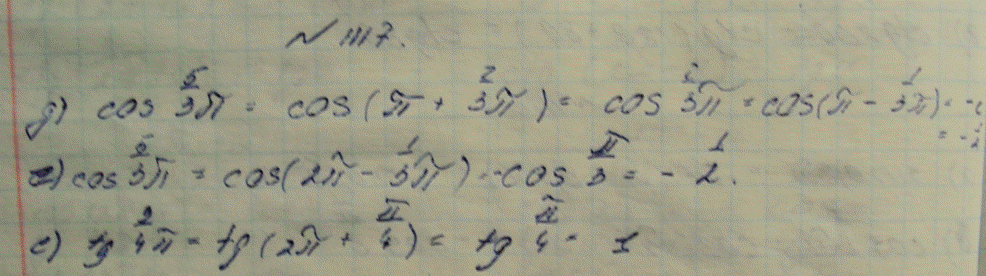 № 1117.
д) cos 5/3 π = cos(π + 2/3 π) = cos 2/3 π = cos(π - 1/3 π) = -c
= -1/2
cos 5/3 π = cos(2π - 1/3 π) = -cos π/3 = - 1/2.
е) tg 9/4 π = tg(2π + π/4) = tg π/4 = 1